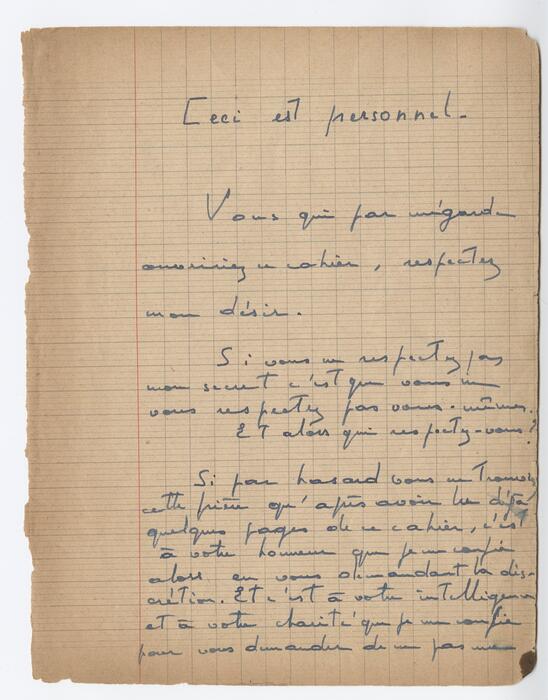 Ceci est personnel.
Vous qui par mégarde
ouvririez ce cahier, respectez
mon désir.
Si vous ne respectez pas
mon secret c'est que vous ne
vous respectez pas vous-mêmes.
Et alors qui respectez-vous?
Si par hasard vous ne trouviez
cette prière qu'après avoir lu déjà
quelques pages de ce cahier, c'est
à votre honneur que je me confie
alors en vous demandant la dis-
crétion. Et c'est à votre intelligence
et à votre charité que je me confie
pour vous demander de ne pas me